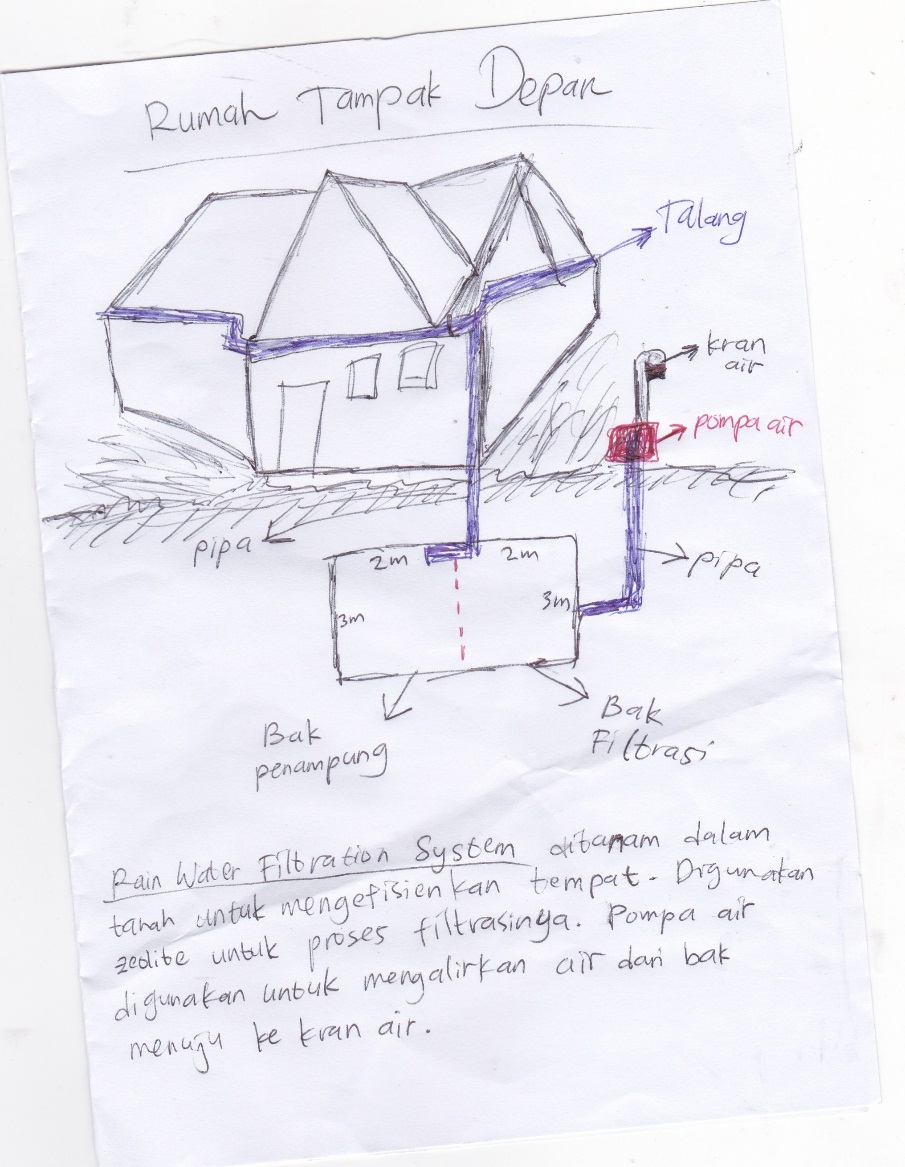 Rumah Tampak Depan
Talang
kran
air
pompa air
pipa
pipa
2m
2m
3m
3m
Bak
penampung
Bak
Filtrasi
Rain Water Filtration System ditanam dalam
tanah untuk mengefisienkan tempat. Digunakan
zeolite untuk proses filtrasinya. Pompa air
digunakan untuk mengalirkan air dari bak
menuju ke kran air.